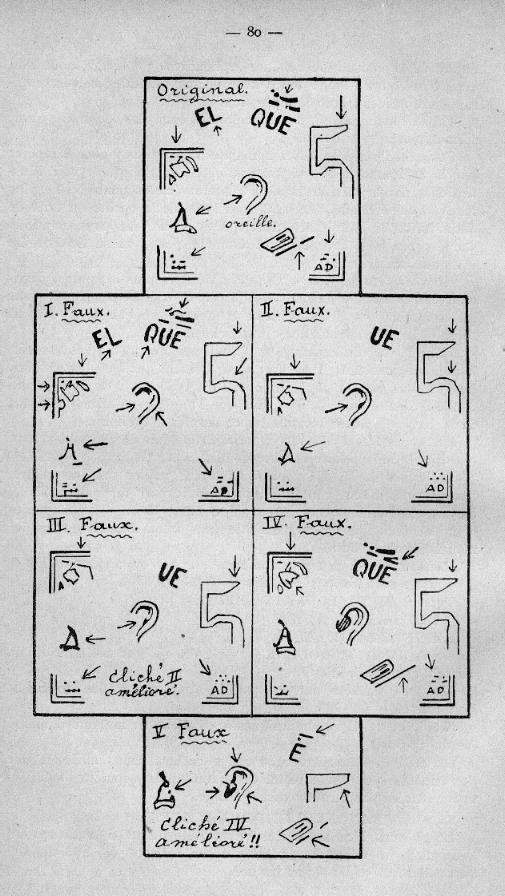 — 80 —
Original.
EL QUE
5
oreille.
AD
I. Faux.
EL QUE
5
AD
II. Faux.
UE
5
AD
III. Faux.
UE
5
Cliché II
amélioré.
AD
IV. Faux.
QUE
5
A
AD
V Faux
E
Cliché IV
amélioré!!